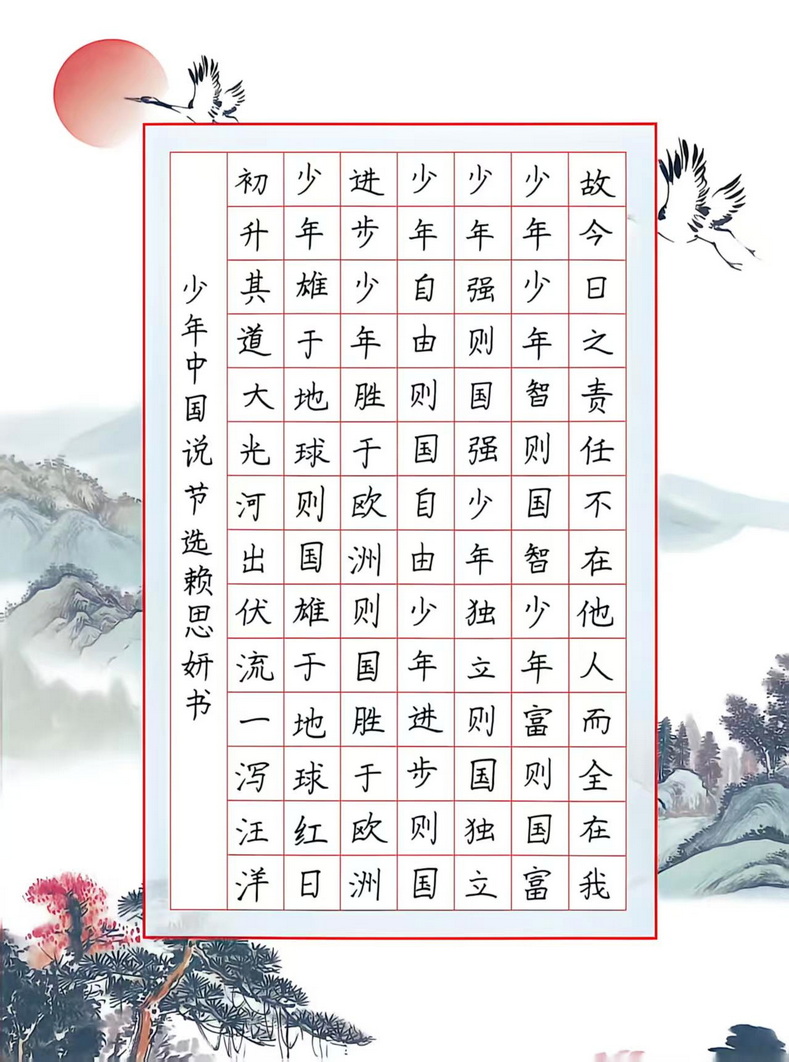 故今日之责任不在他人而全在我
少年少年智则国智少年富则国富
少年强则国强少年独立则国独立
少年自由则国自由少年进步则国
进步少年胜于欧洲则国胜于欧洲
少年雄于地球则国雄于地球红日
初升其道大光河出伏流一泻汪洋
少年中国说节选赖思妍书